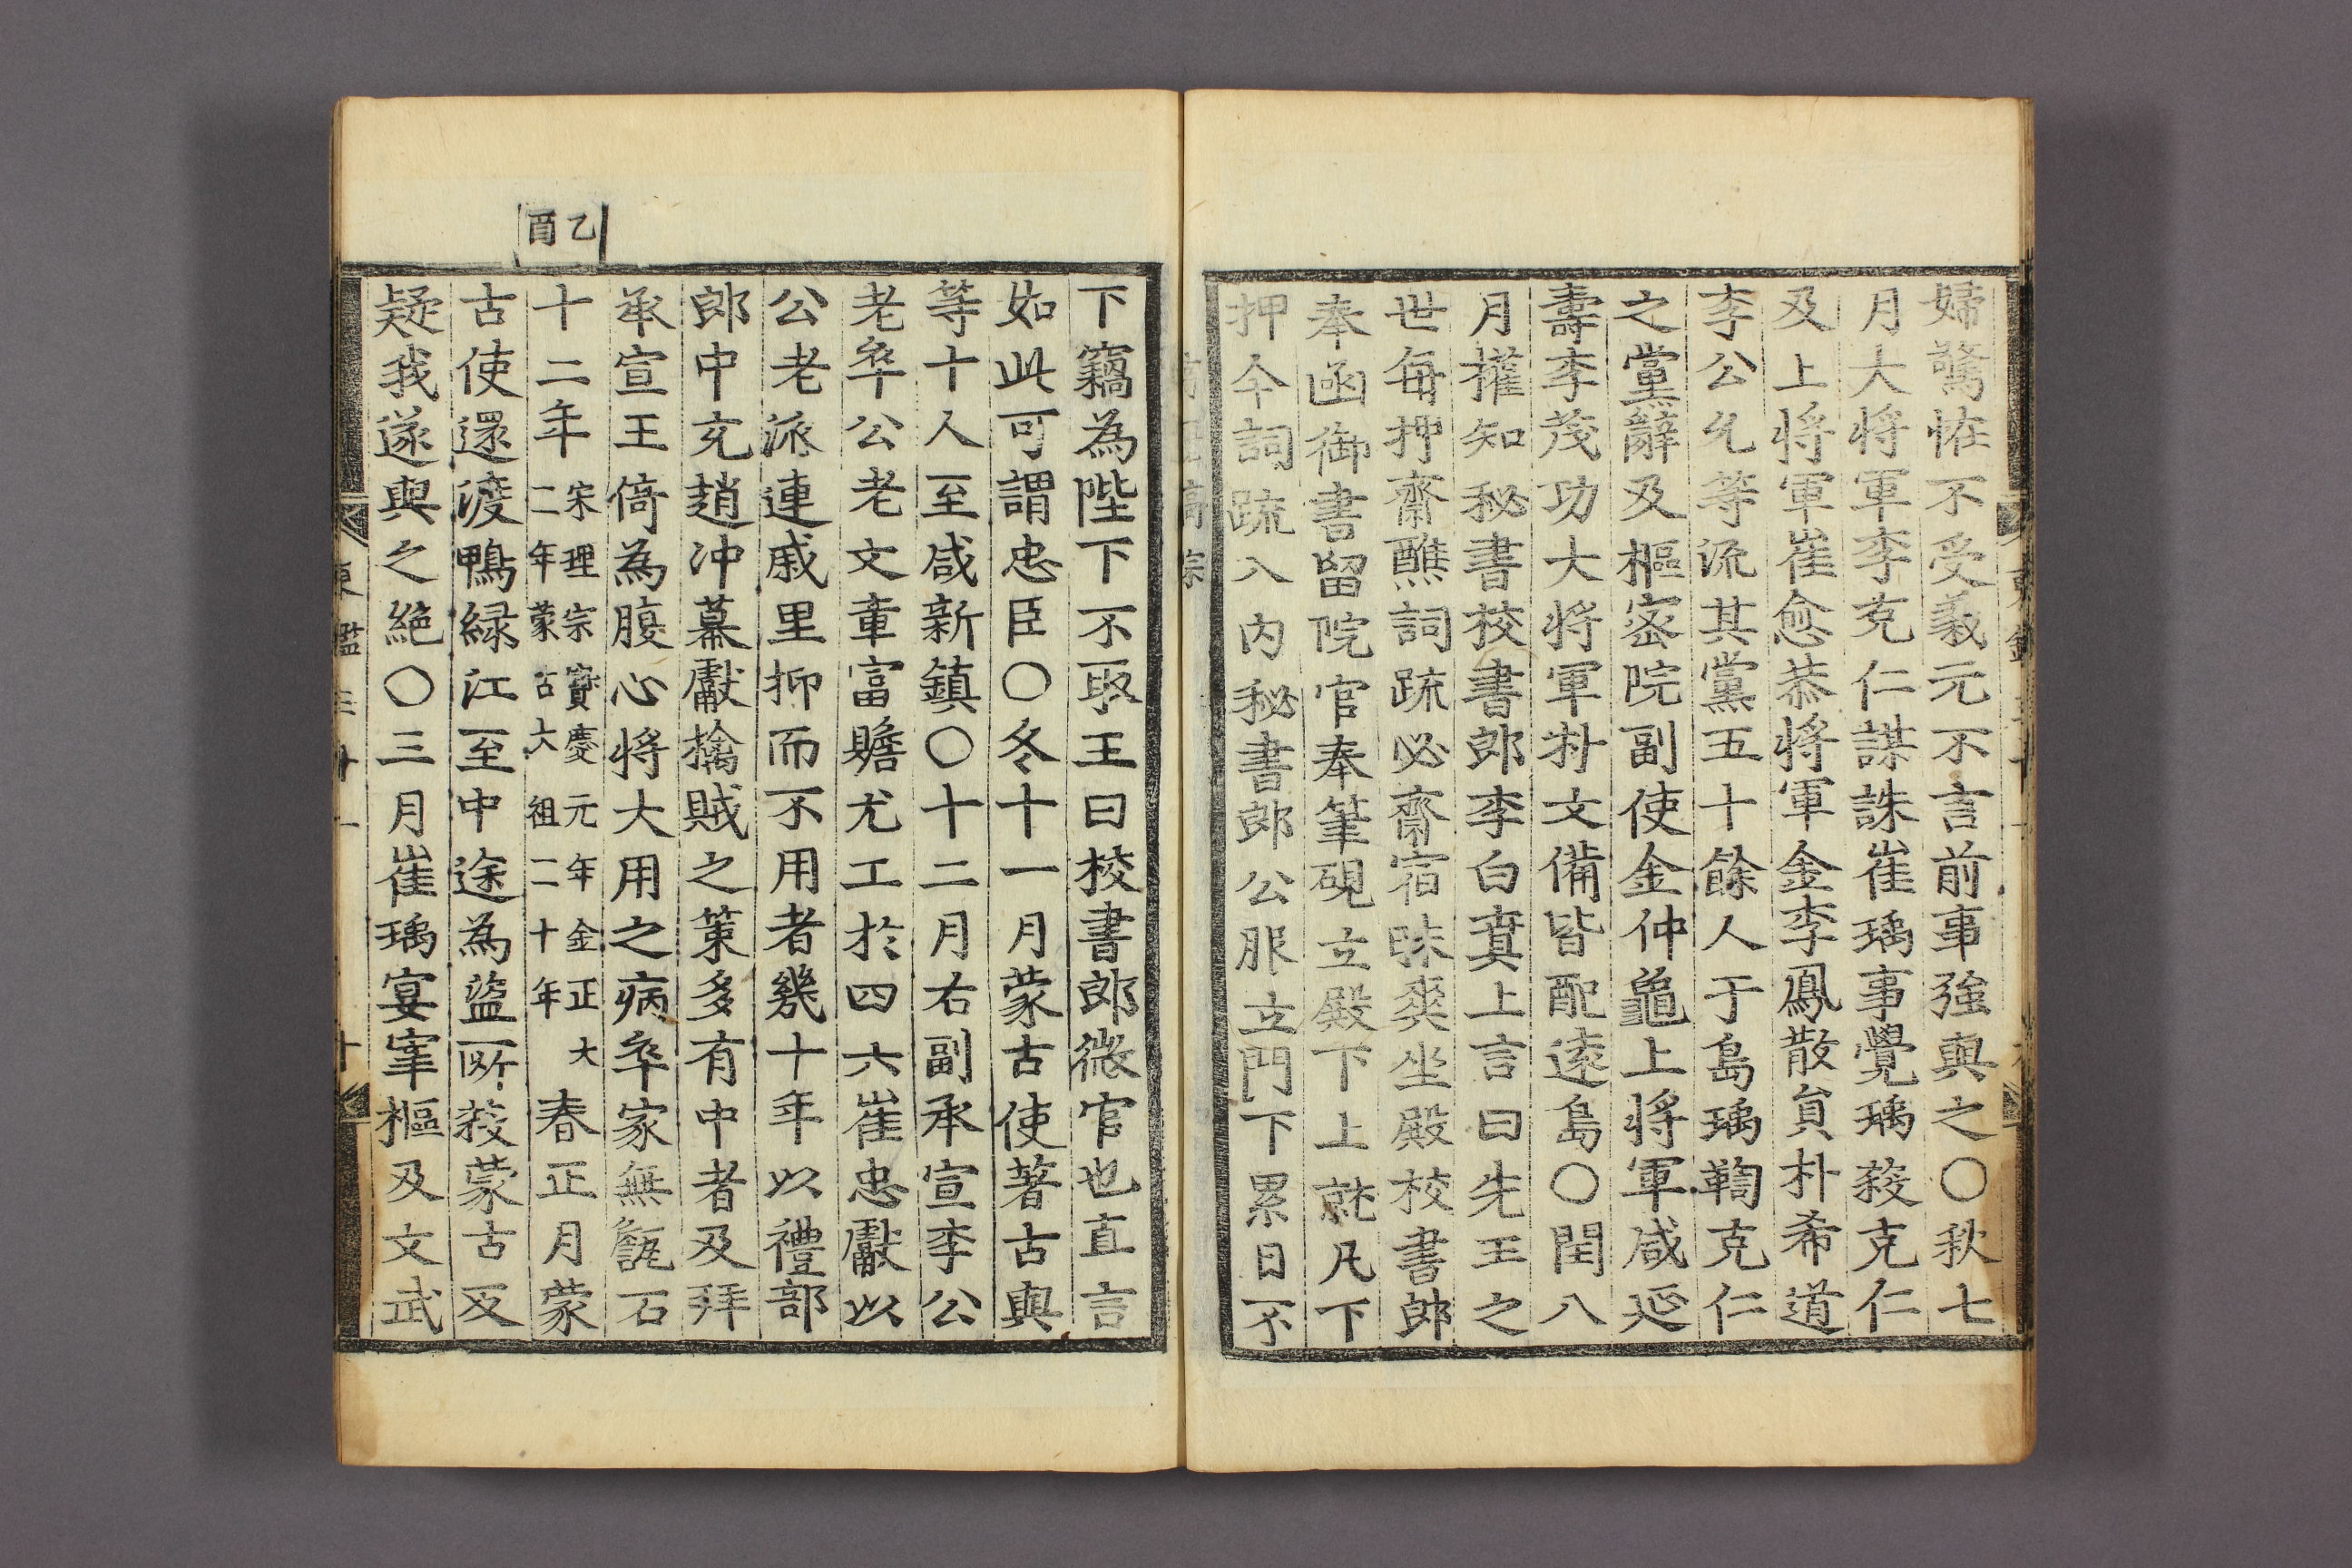 婦驚恠不受義元不言前事強與之○秋七
月大將軍李克仁謀誅崔瑀事覺瑀殺克仁
及上將軍崔愈恭將軍金季鳳散貟朴希道
李公允等流其黨五十餘人于島瑀鞫克仁
之黨辭及樞密院副使金仲龜上將軍咸延
壽李茂功大將軍朴文備皆配遠島○閏八
月權知秘書校書郎李白賁上言曰先王之
世每押齋醮詞疏必齋宿昧爽坐殿校書郎
奉函御書留院官奉筆硯立殿下上就凡下
押今詞疏入內秘書郎公服立門下累日不
下竊為陛下不取王曰校書郎微官也直言
如此可謂忠臣○冬十一月蒙古使著古與
等十人至咸新鎮○十二月右副承宣李公
老卒公老文章富贍尤工於四六崔忠獻以
公老派連戚里抑而不用者幾十年以禮部
郎中充趙沖幕獻擒賊之策多有中者及拜
承宣王倚為腹心將大用之病卒家無甔石
乙酉
十二年宋理宗寶慶元年金正大二年蒙古大祖二十年春正月蒙
古使還渡鴨綠江至中途為盜所殺蒙古反
疑我遂與之絶○三月崔瑀宴宰樞及文武